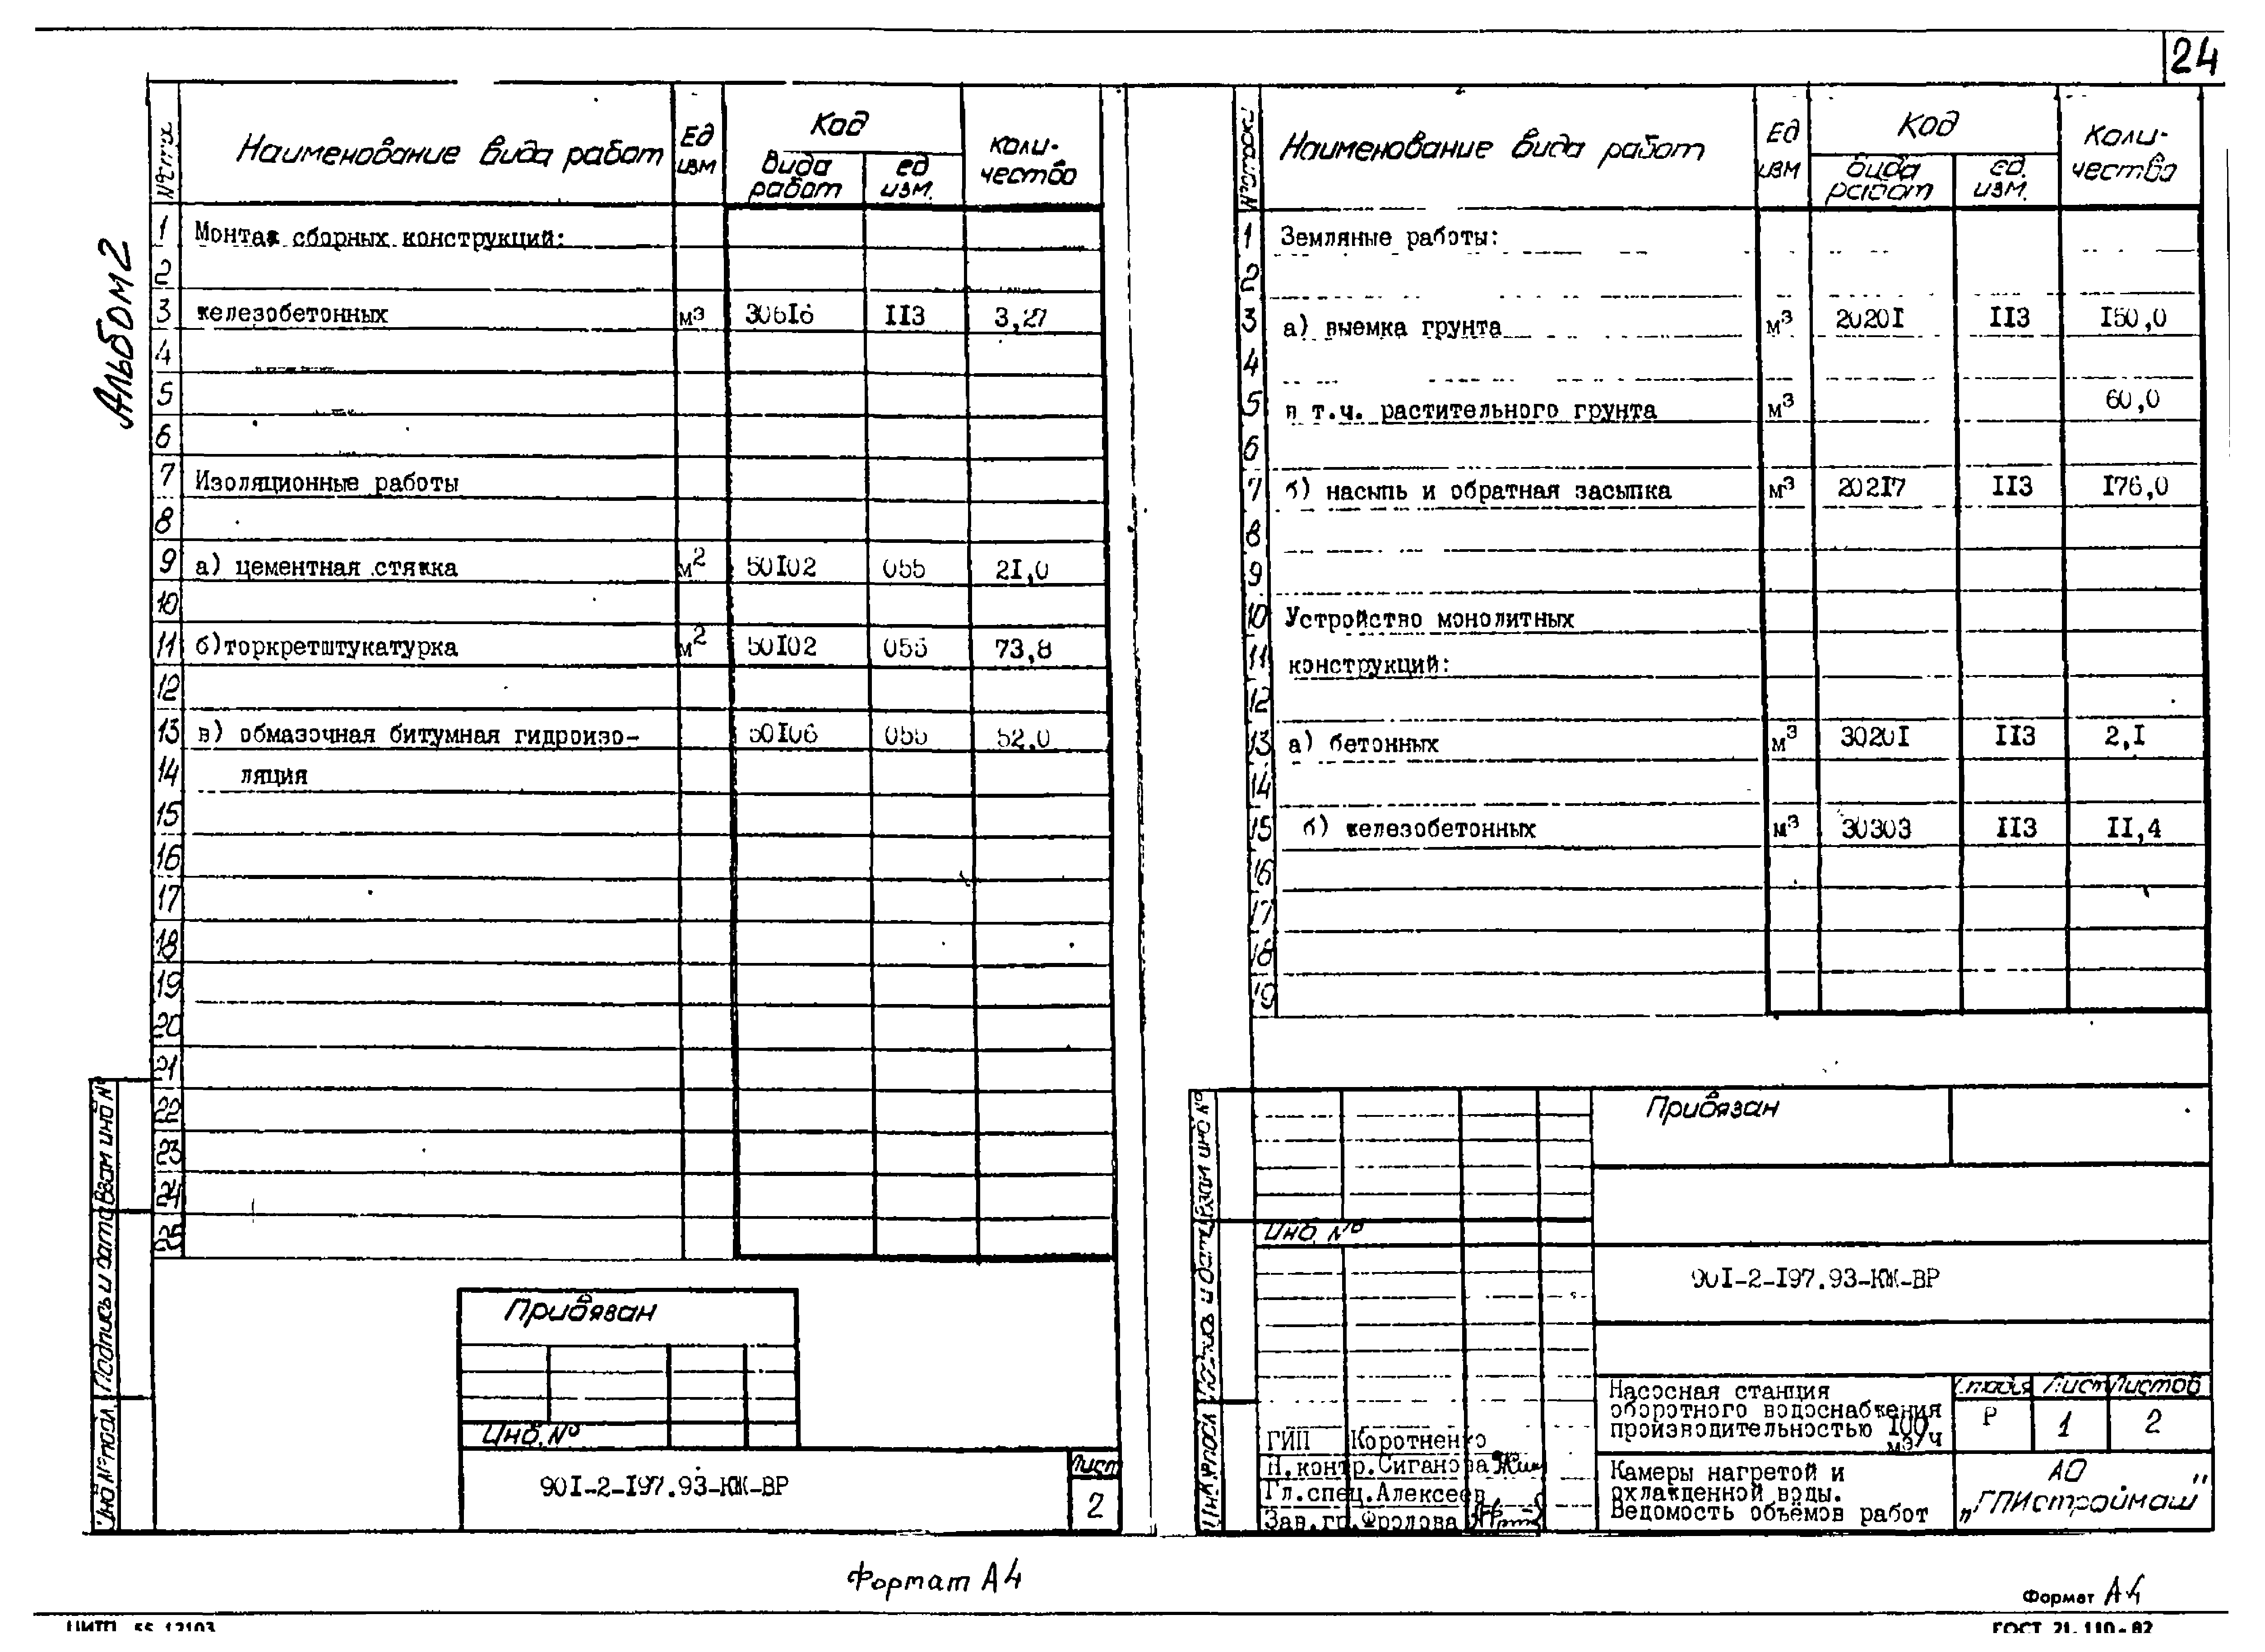 24
Альбом 2
№ строк Наименование вида работ Ед изм Код вида работ ед изм. коли-чество
1 Монтаж сборных конструкций:
2
3 железобетонных м3 30616 II3 3,27
4
5
6
7 Изоляционные работы
8
9 а) цементная стяжка м2 50I02 055 2I,0
10
11 б)торкретштукатурка м2 50I02 055 73,8
12
13 в) обмазочная битумная гидроизо- 50I06 055 52,0
14 ляция
15
16
17
18
19
20
21
22
23
24
25
Инв №подл. Подпись и дата Взам инв №
Привязан
Инв. №
90I-2-I97.93-КЖ-ВР
Лист
2
Формат А4
№ строки Наименование вида работ Ед изм Код вида работ ед. изм. Коли-чество
1 Земляные работы:
2
3 а) выемка грунта м3 2020I II3 I50,0
4
5 в т.ч. растительного грунта м3 60,0
6
7 б) насыпь и обратная засыпка м3 202I7 II3 I76,0
8
9
10 Устройство монолитных
11 конструкций:
12
13 а) бетонных м3 3020I II3 2,I
14
15 б) железобетонных м3 30303 II3 II,4
16
17
18
19
Инв.№подл Подпись и дата Взам инв №
Привязан
Инв. №
90I-2-I97.93-КЖ-ВР
Насосная станция
оборотного водоснабжения
производительностью I00
м3/ч
Стадия Лист Листов
Р 1 2
ГИП Коротненко
Н.контр.Сиганова
Гл.спец.Алексеев
Зав.гр.Фролова
Камеры нагретой и
охлажденной воды.
Ведомость объёмов работ
АО
„ГПИстроймаш"
Формат А4
ЦИТП 55 12103
ГОСТ 21.110-82